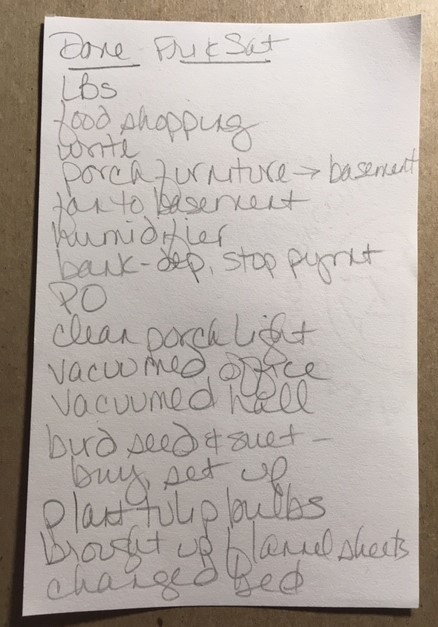 Done Fri & Sat
LBS
food shopping
write
porch furniture → basement
fan to basement
humidifier
bank-dep, stop pymnt
PO
clean porch light
vacuumed office
vacuumed hall
bird seed & suet -
buy, set up
plant tulip bulbs
brought up flannel sheets
changed bed